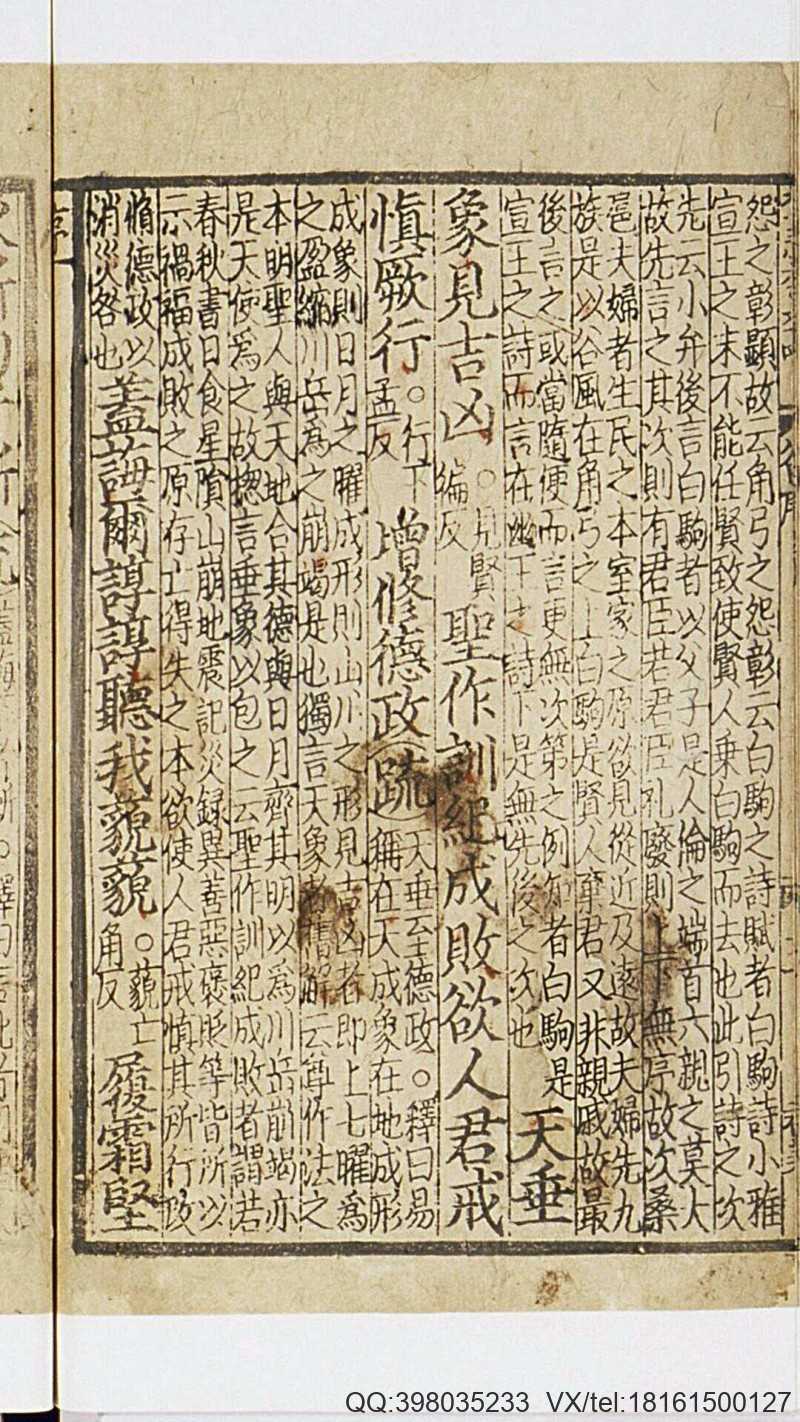 怨之彰顯故云角弓之怨彰云白駒之詩賦者白駒詩小雅
宣王之末不能任賢致使賢人乗白駒而去也此引詩之次
先云小弁後言白駒者以父子是人倫之端首六親之莫大
故先言之其次則有君臣若君臣礼廢則上下無序故次桑
扈夫婦者生民之本室家之原欲見從近及遠故夫婦先九
族是以谷風在角弓之上白駒是賢人棄君又非親戚故最
後言之或當隨便而言更無次第之例知者白駒是
宣王之詩而言在幽王之詩下是無先後之次也
天垂
象見吉凶
○見賢
編反
聖作訓紀成敗欲人君戒
慎厥行
○行下
孟反
增修德政
疏
天垂至德政○釋曰易
稱在天成象在地成形
成象則日月之曜成形則山川之形見吉凶者即上七曜為
之盈縮川岳為之崩竭是也獨言天象者舊解云尊作法之
本明聖人與天地合其德與日月齊其明以為川岳崩竭亦
是天使為之故揔言垂象以包之云聖作訓紀成敗者謂若
春秋書日食星隕山崩地震記災録異善惡褒貶等皆所以
示禍福成敗之原存亡得失之本欲使人君戒慎其所行政
脩德政以
消災咎也
蓋誨爾諄諄聽我藐藐
○藐亡
角反
履霜堅
QQ:398035233 VX/tel:18161500127